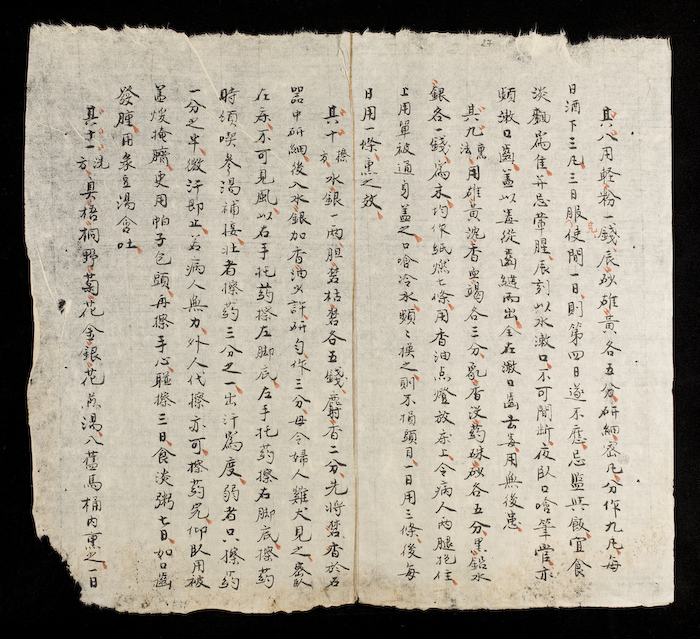 27
其八用輕粉一錢辰砂雄黃各五分研細密凡分作九凡每
日酒下三凡三日服完使間一日則第四日遂不應忌盬與飯宜食
淡觀為隹并忌葷腥辰刻以水漱口不可間斷夜臥口啥筆管亦
頻漱口齒盖以毒從齒縫而出全在漱口齒去毒用無後患
其九熏法用雄黃沉香血竭各三分乳香沒葯硃砂各五分黑鉛水
銀各一錢為末均作紙燃七條用香油点燈放床上令病人兩腿抱住
上用單被通身盖之口啥冷水頻々換之則不損頭目一日用三條後每
日用一條熏之效
其十擦方水銀一兩胆礬枯礬各五錢麝香二分先將礬香於石
器中研細後入水銀加香油少許研勻作三分毋令婦人雞犬見之密臥
在床不可見風以右手托葯擦左脚底左手托葯擦右脚底擦葯
時頻喫參湯補接壯者擦葯三分之一出汗為度弱者只擦葯
一分之半微汗即止若病人無力外人代擦亦可擦葯完仰臥用被
盖煖掩臍更用帕子包頭再擦手心聯擦三日食淡粥七日如口齒
發腫用黍豆湯含吐
其十一洗方真梧桐野菊花金銀花煎湯入舊馬桶內熏之一日